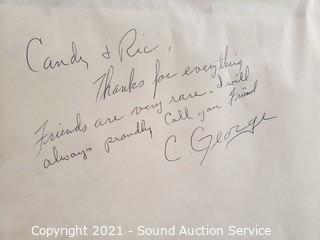 Candy & Ric,
Thanks for everything
Friends are very rare. I will
always proudly Call you Friend
C. George
Copyright 2021 - Sound Auction Service